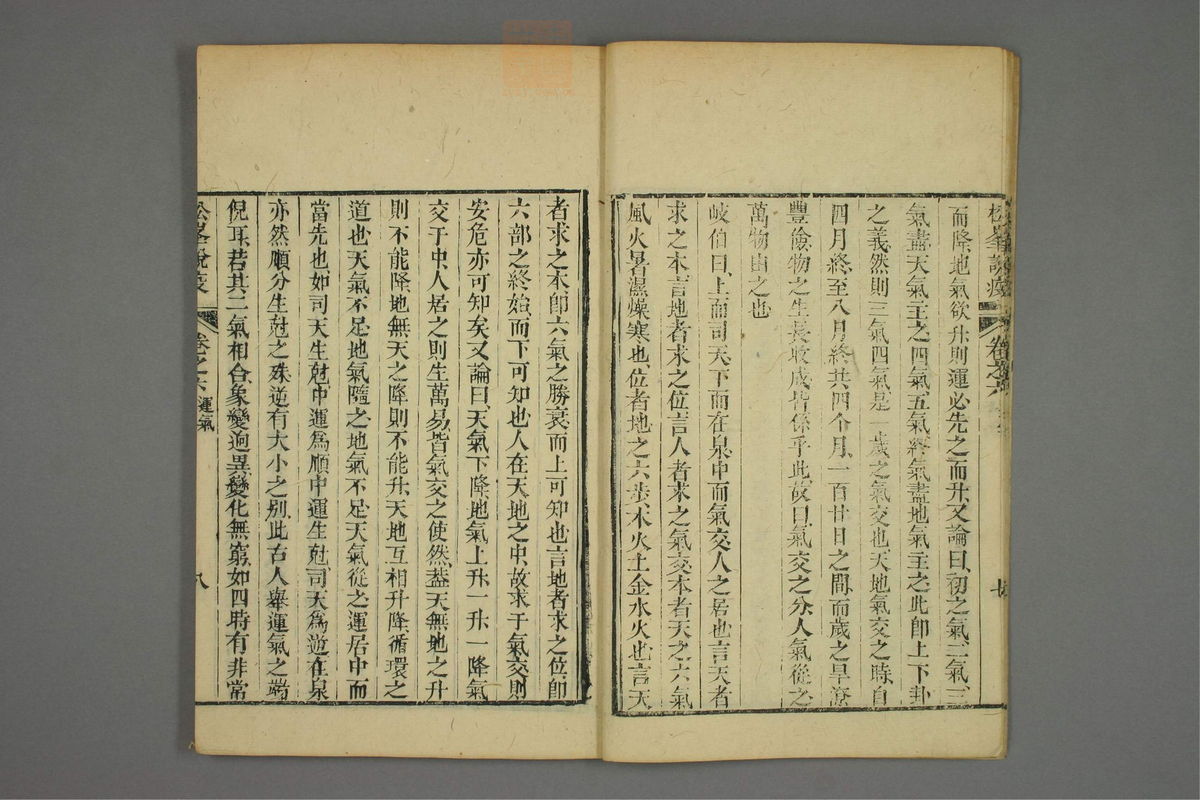 松峯說疫 卷之六
而降地氣欲升則運必先之而升又論曰初之氣二氣三
氣盡天氣主之四氣五氣終氣盡地氣主之此卽上下卦
之義然則三氣四氣是一歲之氣交也天地氣交之時自
四月終至八月終共四个月一百廿日之間而歲之旱潦
豐儉物之生長收成皆係乎此故曰氣交之分人氣從之
萬物由之也
岐伯曰上而司天下而在泉中而氣交人之居也言天者
求之本言地者求之位言人者求之氣交本者天之六氣
風火暑濕燥寒也位者地之六步木火土金水火也言天
者求之本卽六氣之勝衰而上可知也言地者求之位卽
六部之終始而下可知也人在天地之中故求于氣交則
安危亦可知矣又論曰天氣下降地氣上升一升一降氣
交于中人居之則生萬易皆氣交之使然葢天無地之升
則不能降地無天之降則不能升天地互相升降循環之
道也天氣不足地氣隨之地氣不足天氣從之運居中而
當先也如司天生尅中運爲順中運生尅司天爲逆在泉
亦然順分生尅之殊逆有大小之別此古人舉運氣之端
倪耳若其二氣相合象變逈異變化無窮如四時有非常
松峯說疫 卷之六 運氣 八